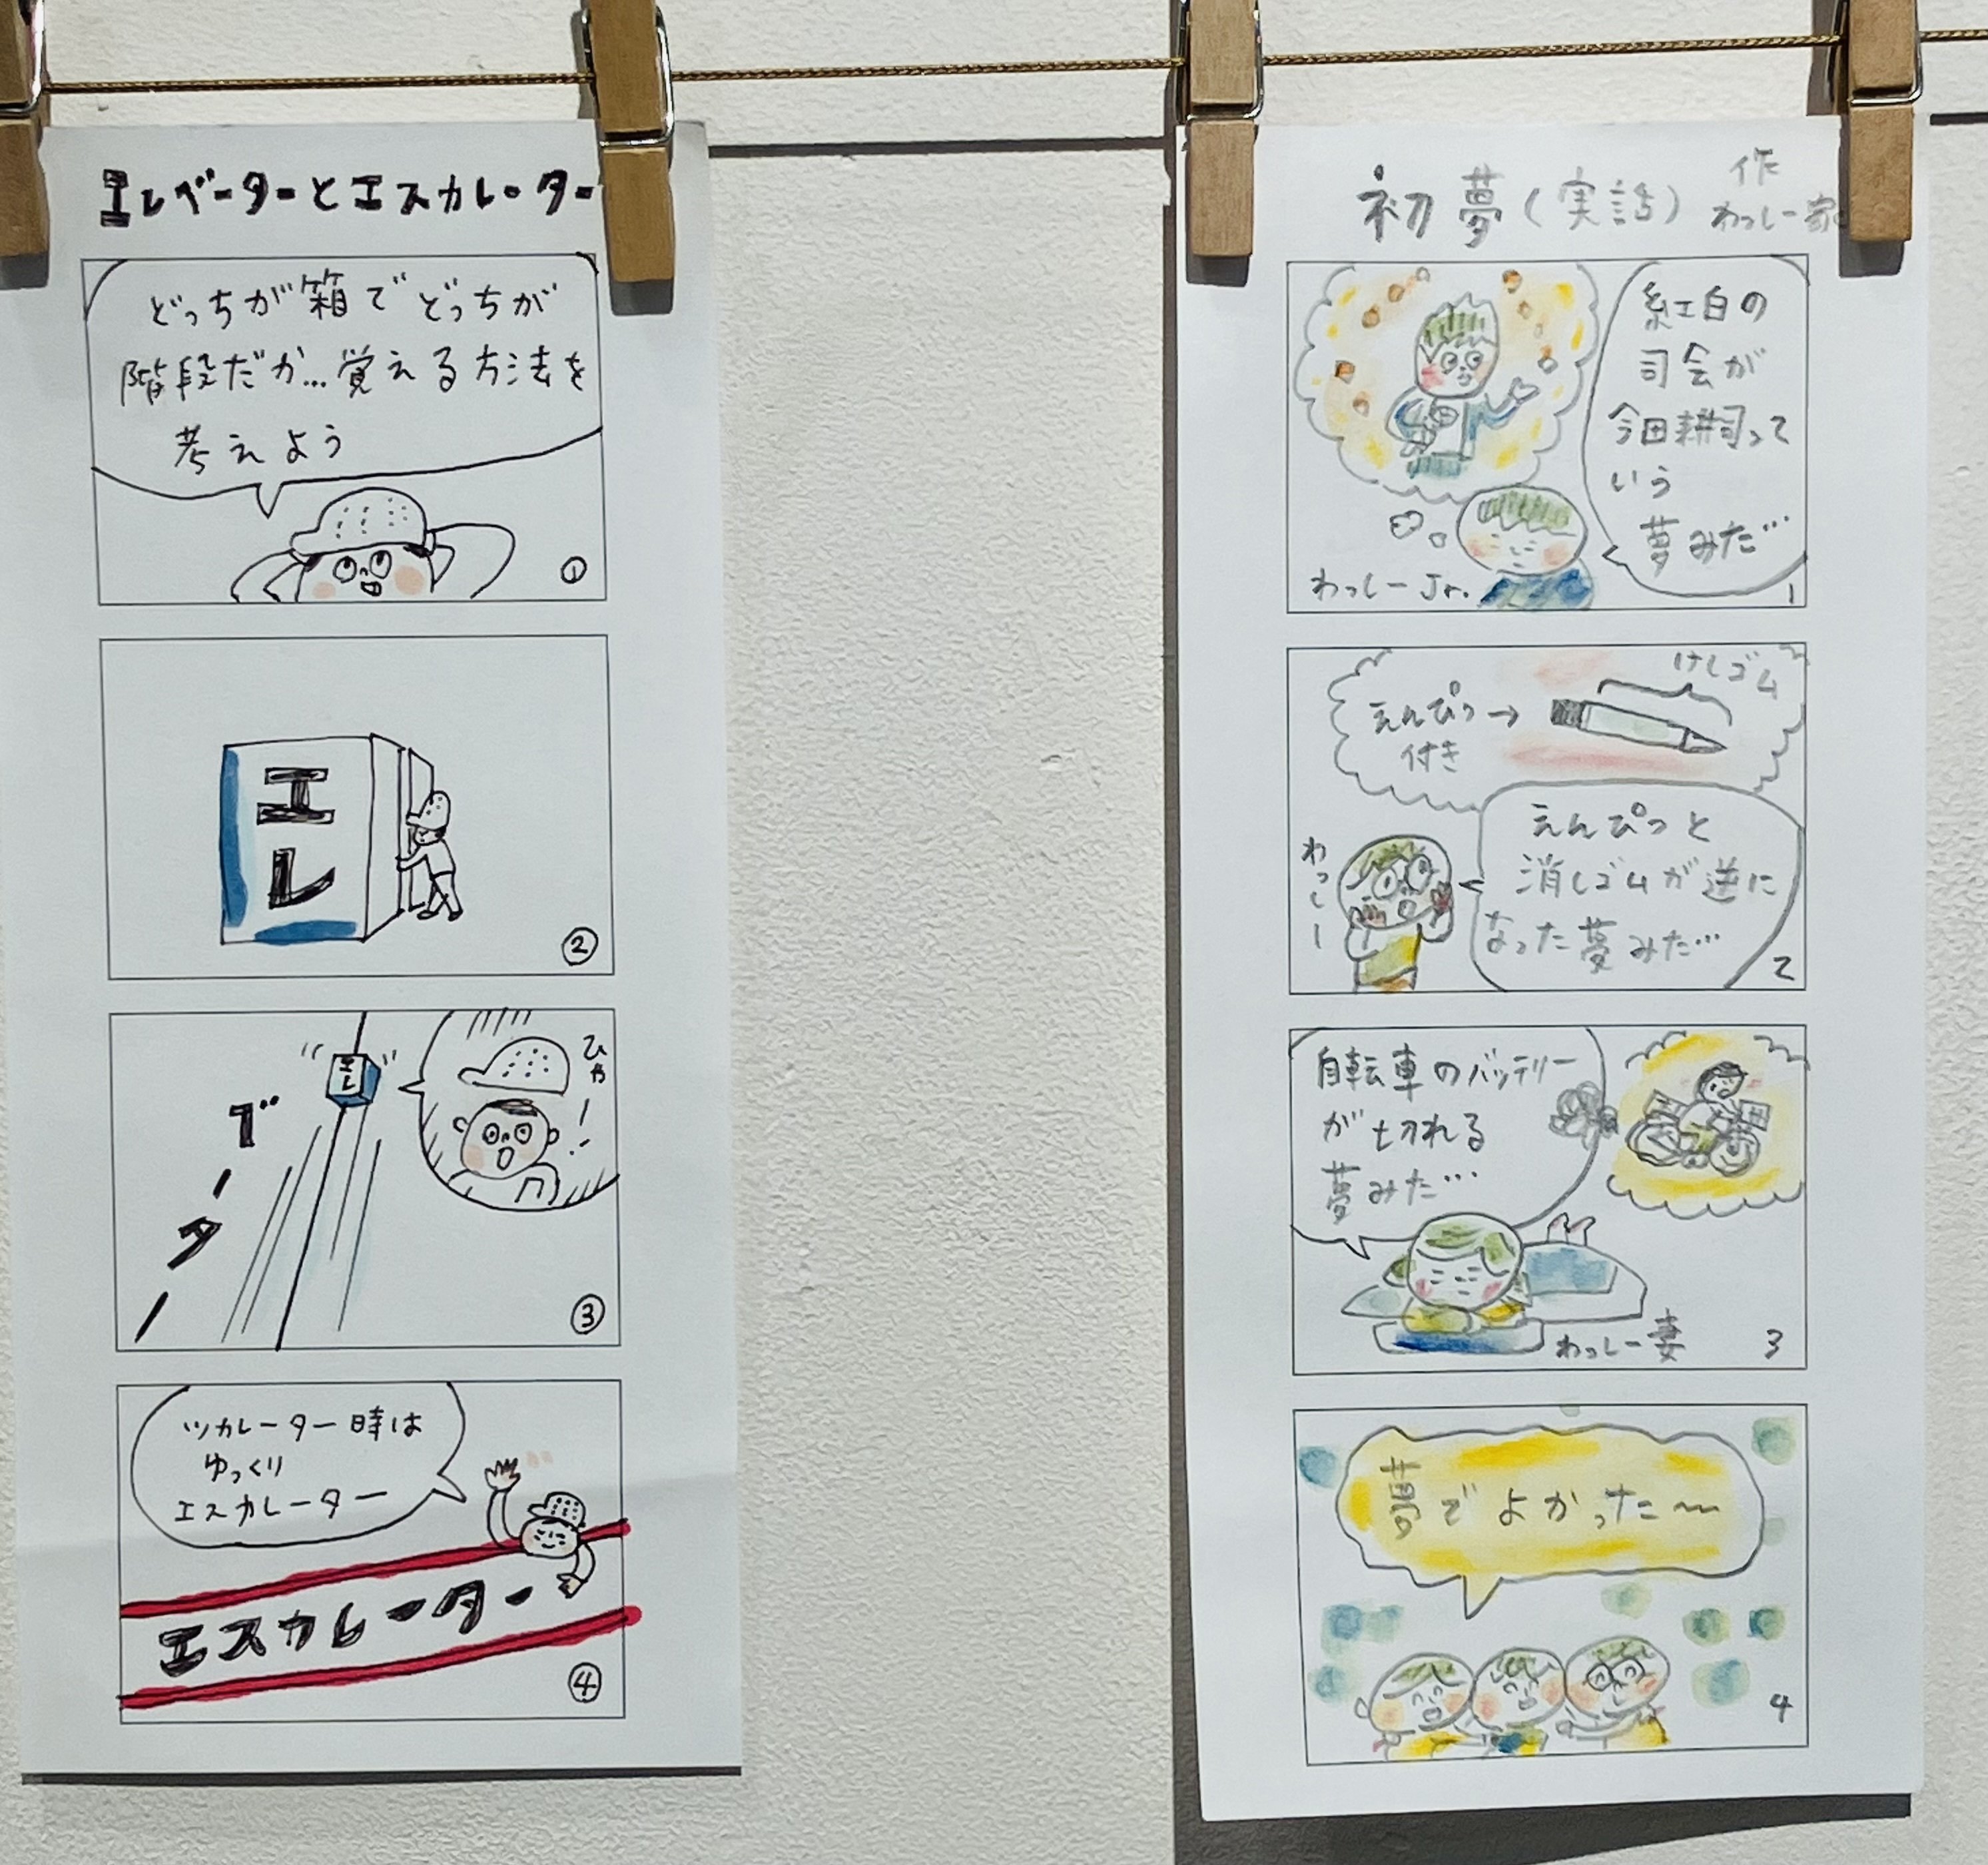 エレベーターとエスカレーター
どっちが箱でどっちが
階段だか…覚える方法を
考えよう
①
エ
レ
②
エレ
ベーター
ひゃ!
③
ツカレーター時は
ゆっくり
エスカレーター
エスカレーター
④
初夢(実話)
作
わっしー家
紅白の
司会が
今田耕司って
いう
夢みた…
わっしーJr.
1
けしゴム
えんぴつ→
付き
えんぴつと
消しゴムが逆に
なった夢みた…
わっしー
2
自転車のバッテリー
が切れる
夢みた…
わっしー妻
3
夢でよかった〜
4